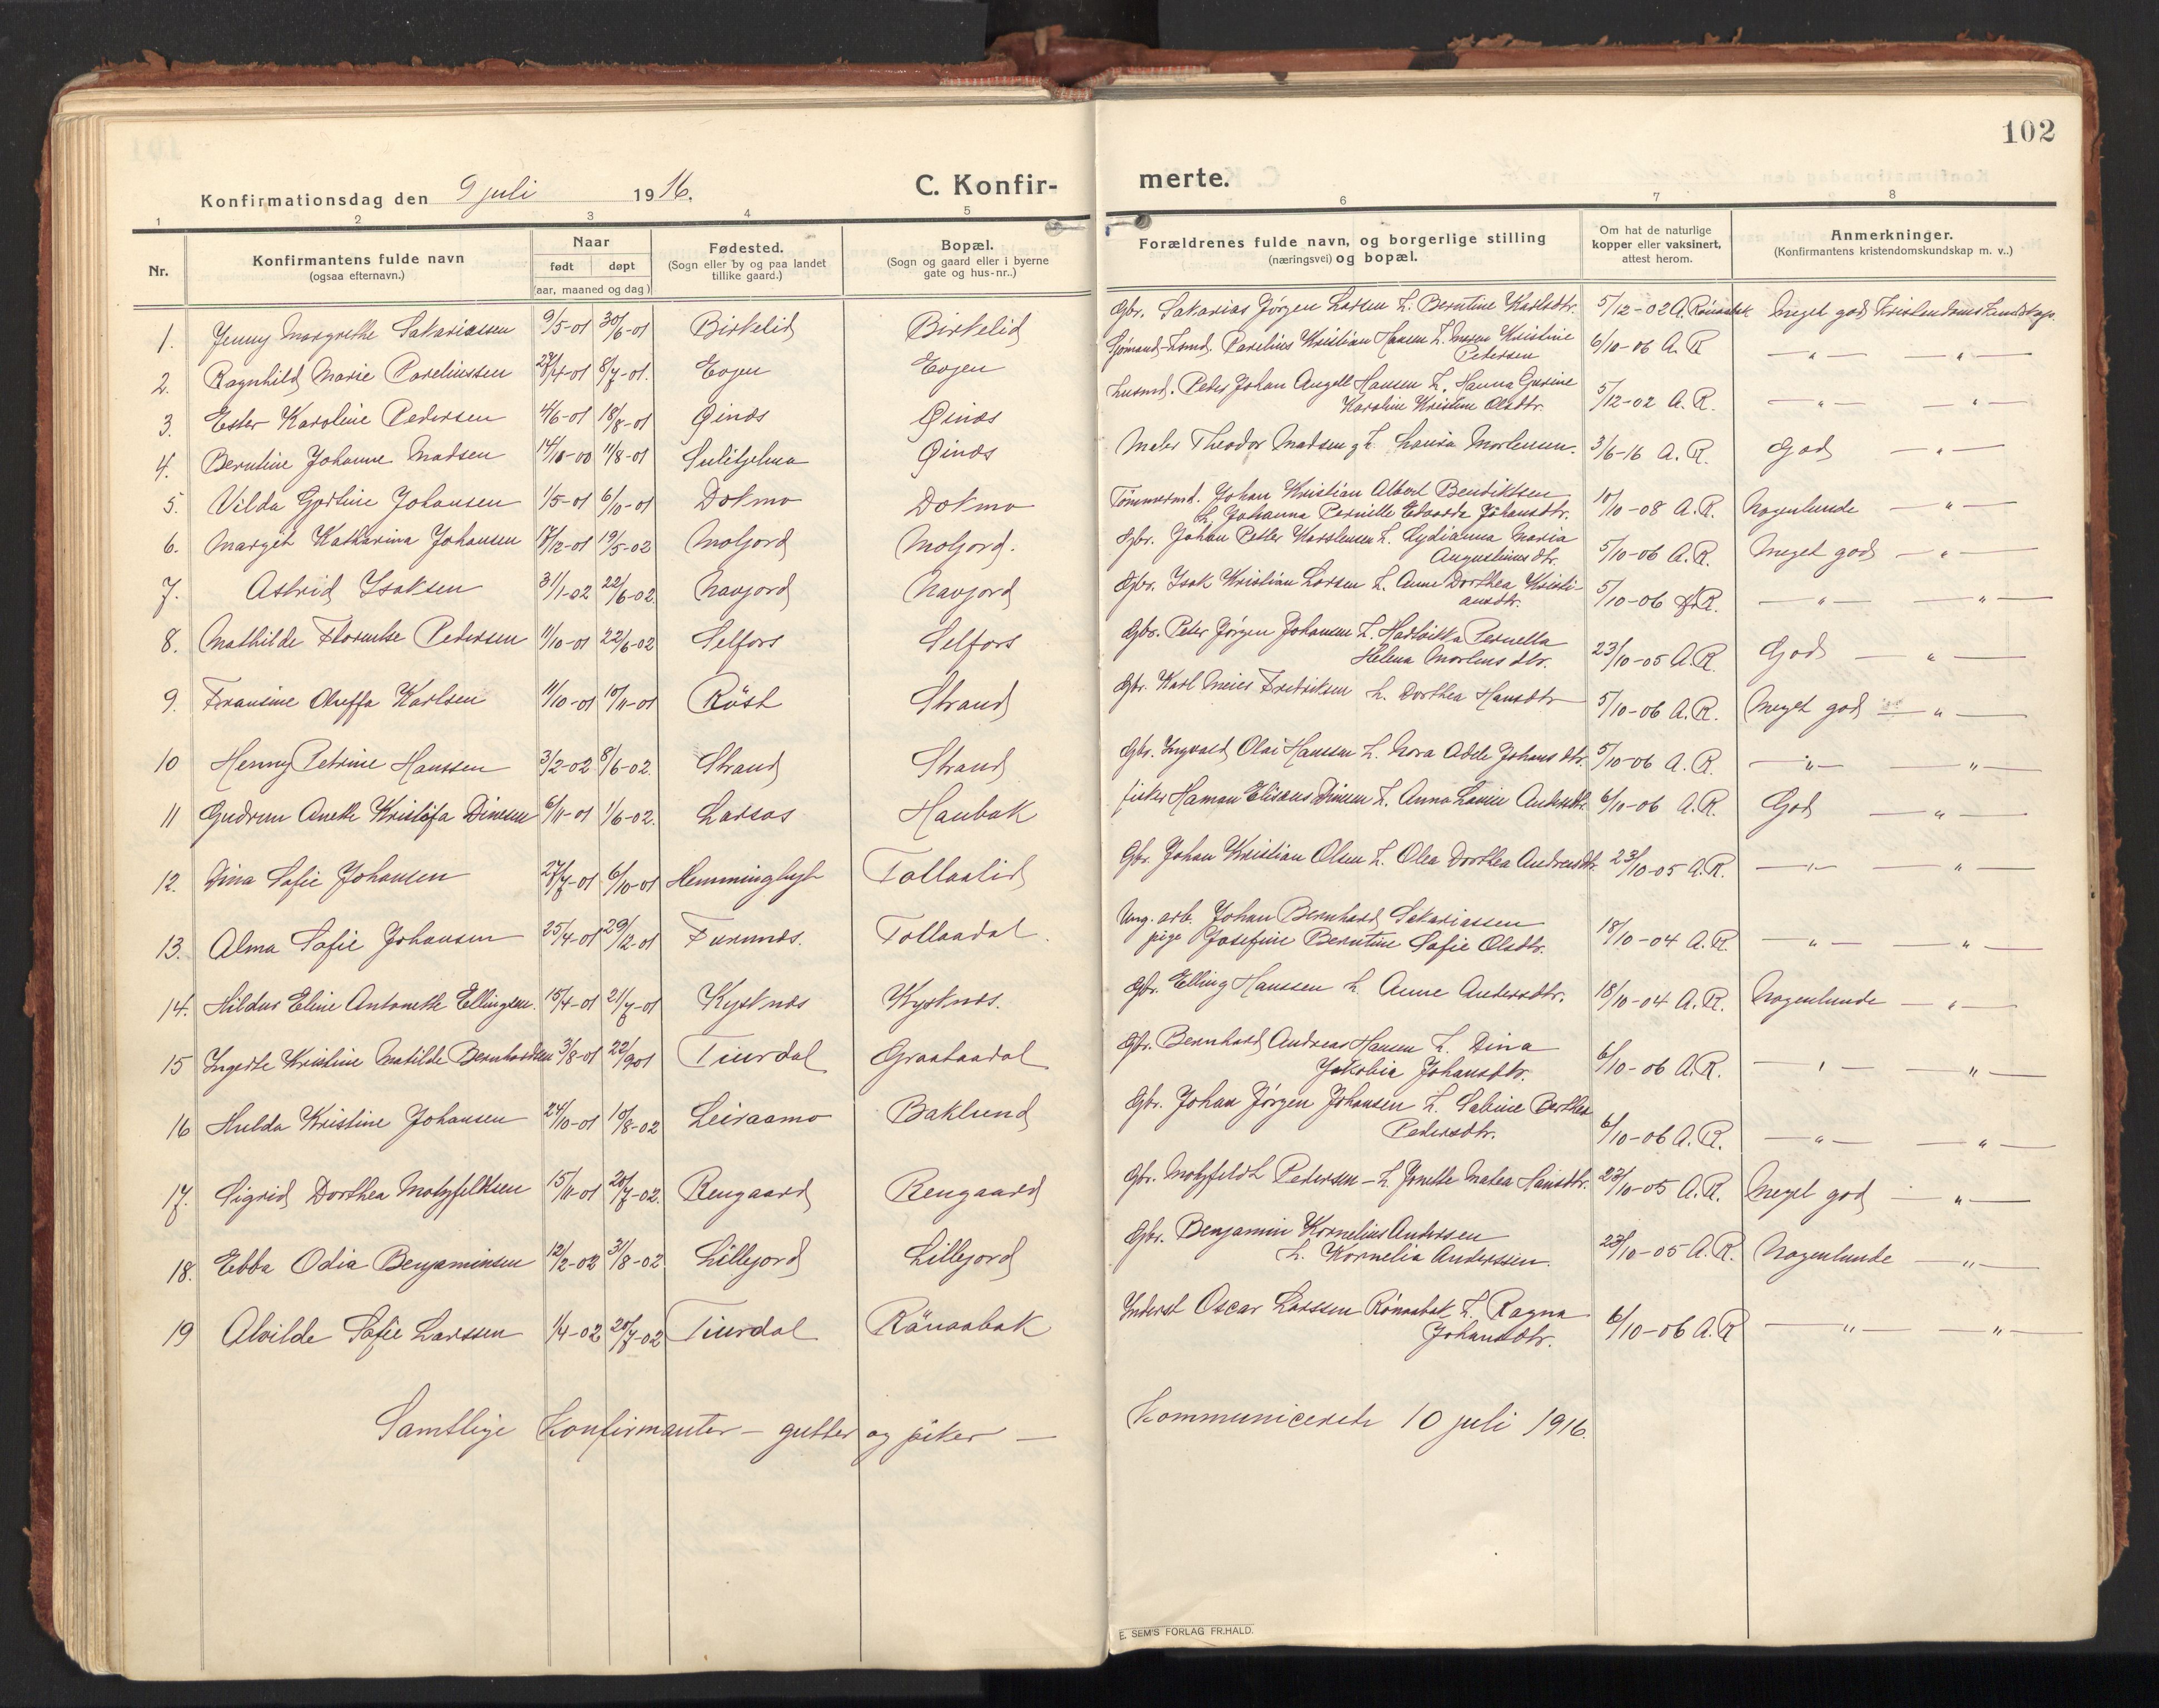 102
Konfirmationsdag den 9 juli 1916. C. Konfir- merte.
1 2 3 4 5 6 7 8
Nr. Konfirmantens fulde navn (ogsaa efternavn.) Naar født døpt (aar, maaned og dag) Fødested. (Sogn eller by og paa landet tillike gaard.) Bopæl. (Sogn og gaard eller i byerne gate og hus-nr..) Forældrenes fulde navn, og borgerlige stilling (næringsvei) og bopæl. Om hat de naturlige kopper eller vaksinert, attest herom. Anmerkninger. (Konfirmantens kristendomskundskap m. v..)
1. Jenny Margrethe Sakariassen 9/5-01 30/6-01 Birkelid Birkelid Gbr. Sakarias Jørgen Larsen h. Berntine Karlsdtr. 5/12-02 A. Rönaabak Meget god Kristendomskundskap.
2. Ragnhild Marie Pareliussen 27/4-01 8/7-01. Evjen Evjen Sjömand-Lsmd. Parelius Kristian Hansen h. Maren Kristine
Petersen 6/10-06 A. R — " — — " —
3. Ester Karoline Pedersen 4/6-01 18/8-01 Øinæs Øinæs Husmd. Peder Johan Angell Hansen h. Hanna Gurine
Karoline Kristine Olsdtr. 5/12-02 A. R. — " — — " —
4. Berntine Johanne Madsen 14/10-00 11/8-01 Sulitjelma Øinæs Maler Theodor Madsen g h. Lovisa Mortensen. 3/6-16 A. R. God — " —
5. Vilda Gjertine Johansen 1/5-01 6/10-01 Dokmo Dokmo Tömmermd. Johan Kristian Albert Bendiktsen
h. Johanna Pernille Edvarda Johansdtr. 10/10-08 A. R. Nogenlunde — " —
6. Margit Katharina Johansen 17/12-01 19/5-02 Moljord Moljord. Gbr. Johan Petter Karstensen h. Lydianna Maria
Augustinusdtr. 5/10-06 A. R. Meget god — " —
7. Astrid Isaksen 31/1-02 22/6-02 Navjord Navjord Gbr. Isak Kristian Larsen h. Anne Dorthea Kristi-
ansdtr. 5/10-06 A. R. — " — — " —
8. Mathilde Florentse Pedersen 11/10-01 22/6-02 Selfors Selfors Gbr. Peter Jörgen Johansen h. Hartvikka Pernella
Helena Mortensdtr. 23/10-05 A. R. God — " —
9. Fransine Oleffa Karlsen 11/10-01 10/11-01 Röst Strand Gbr. Karl Meier Fredriksen h. Dorthea Hansdtr 5/10-06 A. R. Meget god — " —
10 Henny Petrine Hanssen 3/2-02 8/6-02. Strand Strand Gbr. Ingvald Olai Hanssen h. Nora Adele Johansdtr. 5/10-06 A. R. — " — — " —
11 Gudrun Anette Kristofa Dinesen 6/11-01 1/6-02. Larsos Haubak fisker Haman Elisæus Dinesen h. Anna Lovise Andersdtr. 6/10-06 A. R. God — " —
12. Dina Sofie Johansen 27/7-01 6/10-01 Hemminghyt Tollaalid Gbr. Johan Kristian Olsen h. Olea Dorthea Andreasdtr. 23/10-05 A. R. — " — "
13. Alma Sofie Johansen 25/4-01 29/12-01 Furunæs. Tollaadal. Ung. arb. Johan Bernhard Sakariassen
pige Josefine Berntine Sofie Olsdtr. 18/10-04 A. R — " — — " —
14. Hildur Eline Antonette Ellingsen. 15/4-01 21/7-01 Kystnæs Kystnæs. Gbr. Elling Hanssen h. Anne Andersdtr. 18/10-04 A. R. Nogenlunde — " —
15 Ingerte Kristine Matilde Bernhardsen 3/8-01 22/9 01 Tiurdal Graataadal Gbr. Bernhard Andreas Hansen h. Dina
Jakobia Johansdtr. 6/10-06 A. R. — " — — " —
16 Hulda Kristine Johansen 24/10-01 10/8-02 Leiraamo Baklund Gbr. Johan Jörgen Johansen h. Sabine Berthea
Pedersdtr. 6/10-06 A. R. — " — — " —
17. Sigrid Dorthea Motzfeldtsen 15/11-01 20/7-02. Rengaard Rengaard Gbr. Motzfeldt Pedersen - h. Jonette Matea Hansdtr. 23/10-05 A. R. Meget god — " —
18. Ebba Odia Benjaminsen 12/2-02 31/8-02. Lillejord Lillejord Gbr. Benjamin Kornelius Anderssen
h. Kornelia Anderssen. 23/10-05 A. R. Nogenlunde — " —
19 Alvilde Sofie Larssen 1/4-02 20/7-02 Tiurdal Rönaabak Inderst Oscar Larssen Rönaabak h. Ragna
Johansdtr. 6/10-06 A. R — " — — " —
Samtlige Konfirmanter — gutter og piker — Kommunicerete 10 juli 1916.
E. SEM'S FORLAG FR.HALD.